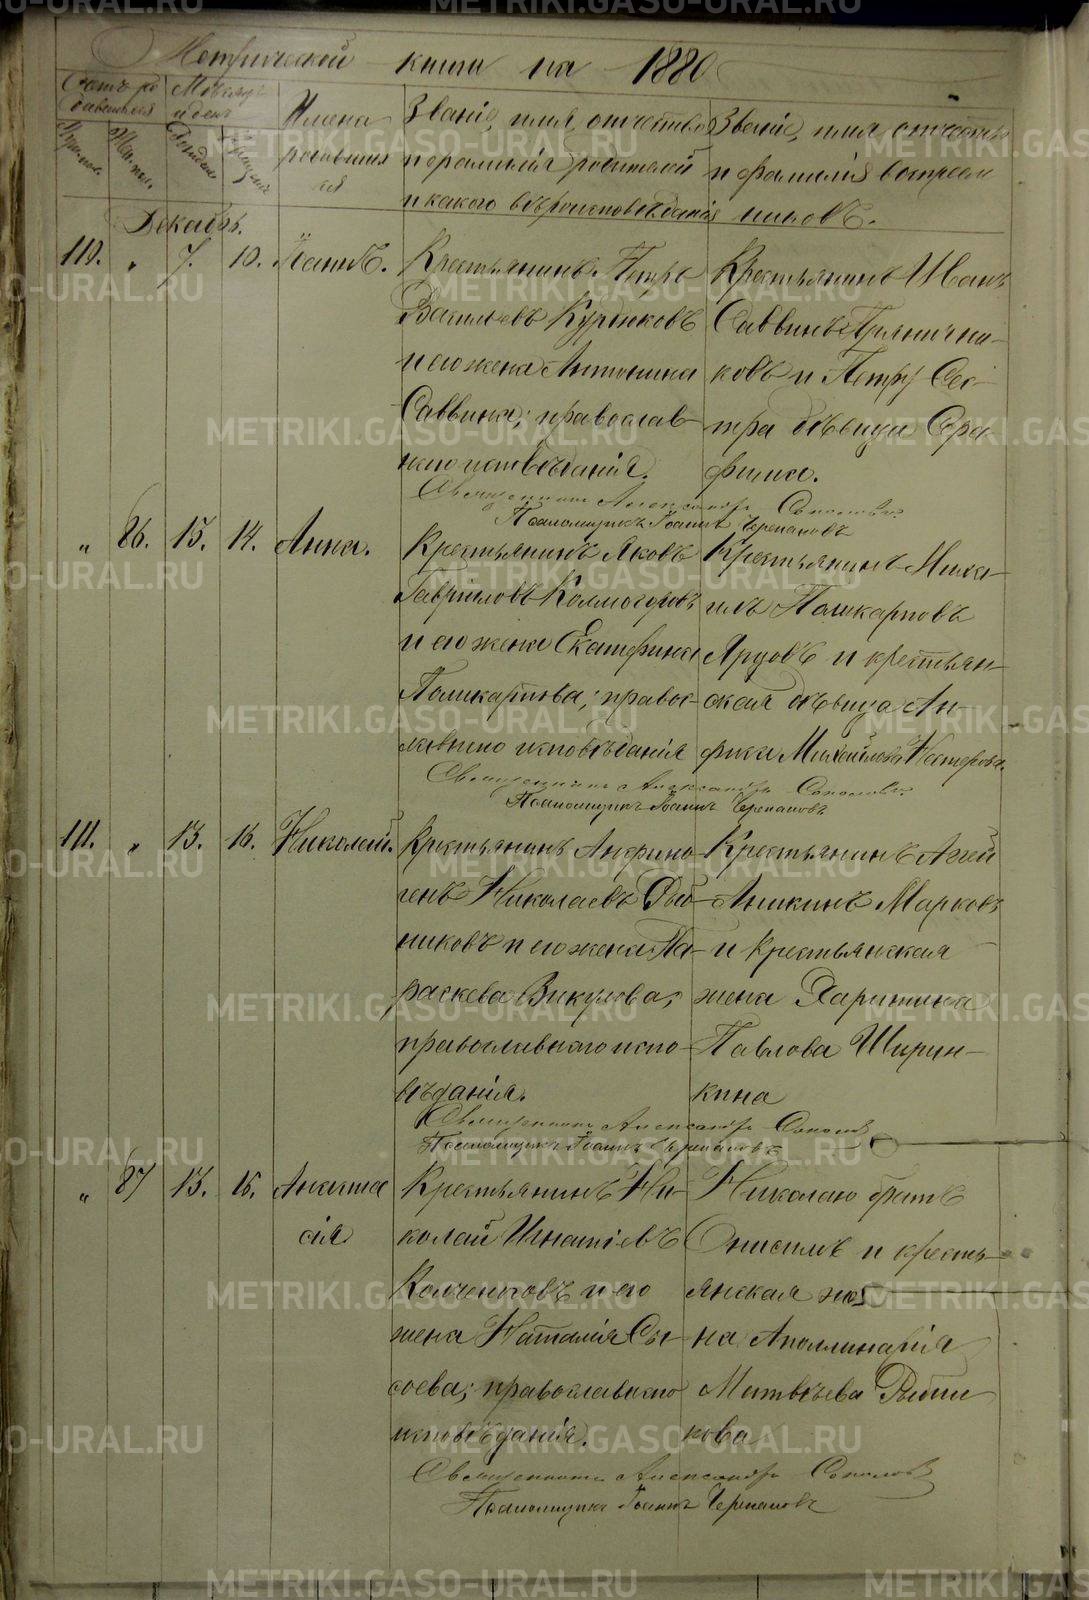 Метрической книги на 1880
Счетъ ро- Мѣсяцъ
и день
Имена
родившихся
Званіе, имя, отчество
и фамилія родителей
и какого вѣроисповѣданія
Званіе, имя, отчество
и фамилія воспріем-
никовъ.
Декабрь.
110. „ 7. 10. Іоаннъ.
Крестьянинъ Петръ
Васильевъ Куренковъ
и его жена Антонина
Саввина; православ-
наго исповѣданія.
Крестьянинъ Иванъ
Саввинъ Прянични-
ковъ и Петру сес-
тра дѣвица Сера-
фима.
Священникъ Александръ Соколовъ
Псаломщикъ Іоаннъ Черепановъ
„ 86. 13. 14. Анна.
Крестьянинъ Яковъ
Гавриловъ Колмогоровъ
и его жена Екатерина
Поликарпова; правос-
лавнаго исповѣданія
Крестьянинъ Миха-
илъ Поликарповъ
Ярцовъ и крестьян-
ская дѣвица Ан-
фиса Михайлова Нестерова.
Священникъ Александръ Соколовъ
Псаломщикъ Іоаннъ Черепановъ
111. „ 13. 16. Николай.
Крестьянинъ Анфино-
генъ Николаевъ Рыб-
никовъ и его жена Па-
раскева Викулова;
православнаго испо-
вѣданія.
Крестьянинъ Аггей
Аникинъ Марковъ
и крестьянская
жена Харитина
Павлова Ширин-
кина
Священникъ Александръ Соколовъ
Псаломщикъ Іоаннъ Черепановъ
„ 87 13. 16. Анаста
сія
Крестьянинъ Ни-
колай Игнатіевъ
Колчеговъ и его
жена Наталія Сы-
соева; православнаго
исповѣданія.
Николаю братъ
Онисимъ и кресть-
янская же-
на Аполлинарія
Матвѣева Рыбни
кова
Священникъ Александръ Соколовъ
Псаломщикъ Іоаннъ Черепановъ
METRIKI.GASO-URAL.RU